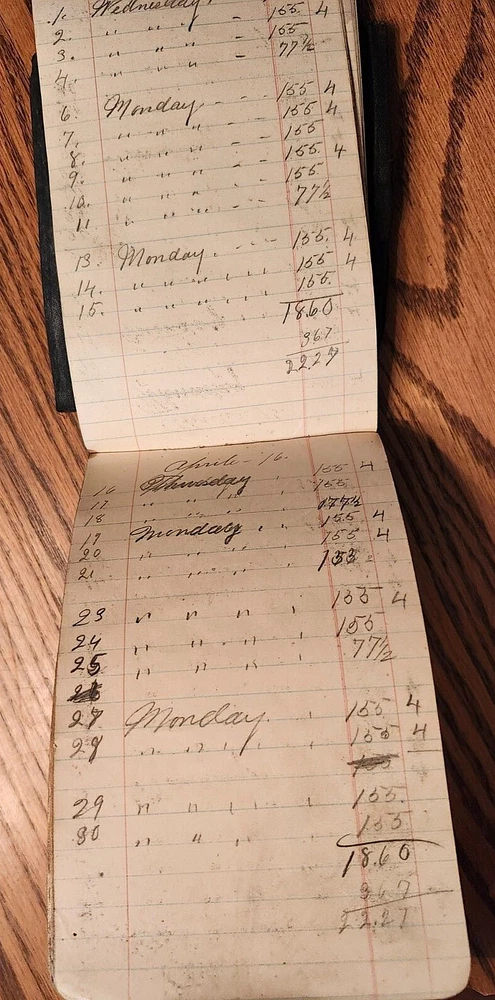 1. Wednesday, - 155 4
2. " " " - 155
3. " " " - 77½
4. " " "
6. Monday - - 155 4
7. " " " - - 155 4
8. " " " - - 155
9. " " " - - 155. 4
10. " " " - - 155.
11 " " " - - 77½
13. Monday. - - - 155. 4
14. " " " " " 155 4
15. " " " " " 155.
18.60
367
22.27
Aprile - 16.
16 Thursday 155 4
17 " " " " 155
18 " " " " 177½
19 Monday " 155 4
20 " " " " 155 4
21 " " " " 153
23 " " " " 155 4
24 " " " " 155
25 " " " " 77½
26
27 Monday. " 155 4
28 " " " " 155 4
155
29 " " " " 155.
30 " " " " 155
18.60
367
22.27